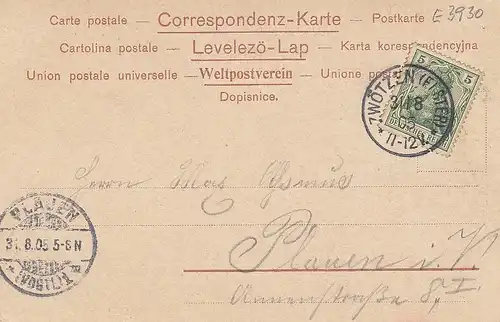 E 3930
Carte postale — Correspondenz-Karte — Postkarte
Cartolina postale — Levelezö-Lap — Karta korespondencyjna
Union postale universelle — Weltpostverein — Unione postale
Dopisnice.
5 5
ZWÖTZEN (ELSTER)
31 8
11-12V
Herrn Max
Plauen i. V.
Annenstraße 8, I.
PLAUEN
31.8.05 5-6N
(VOGTL.)